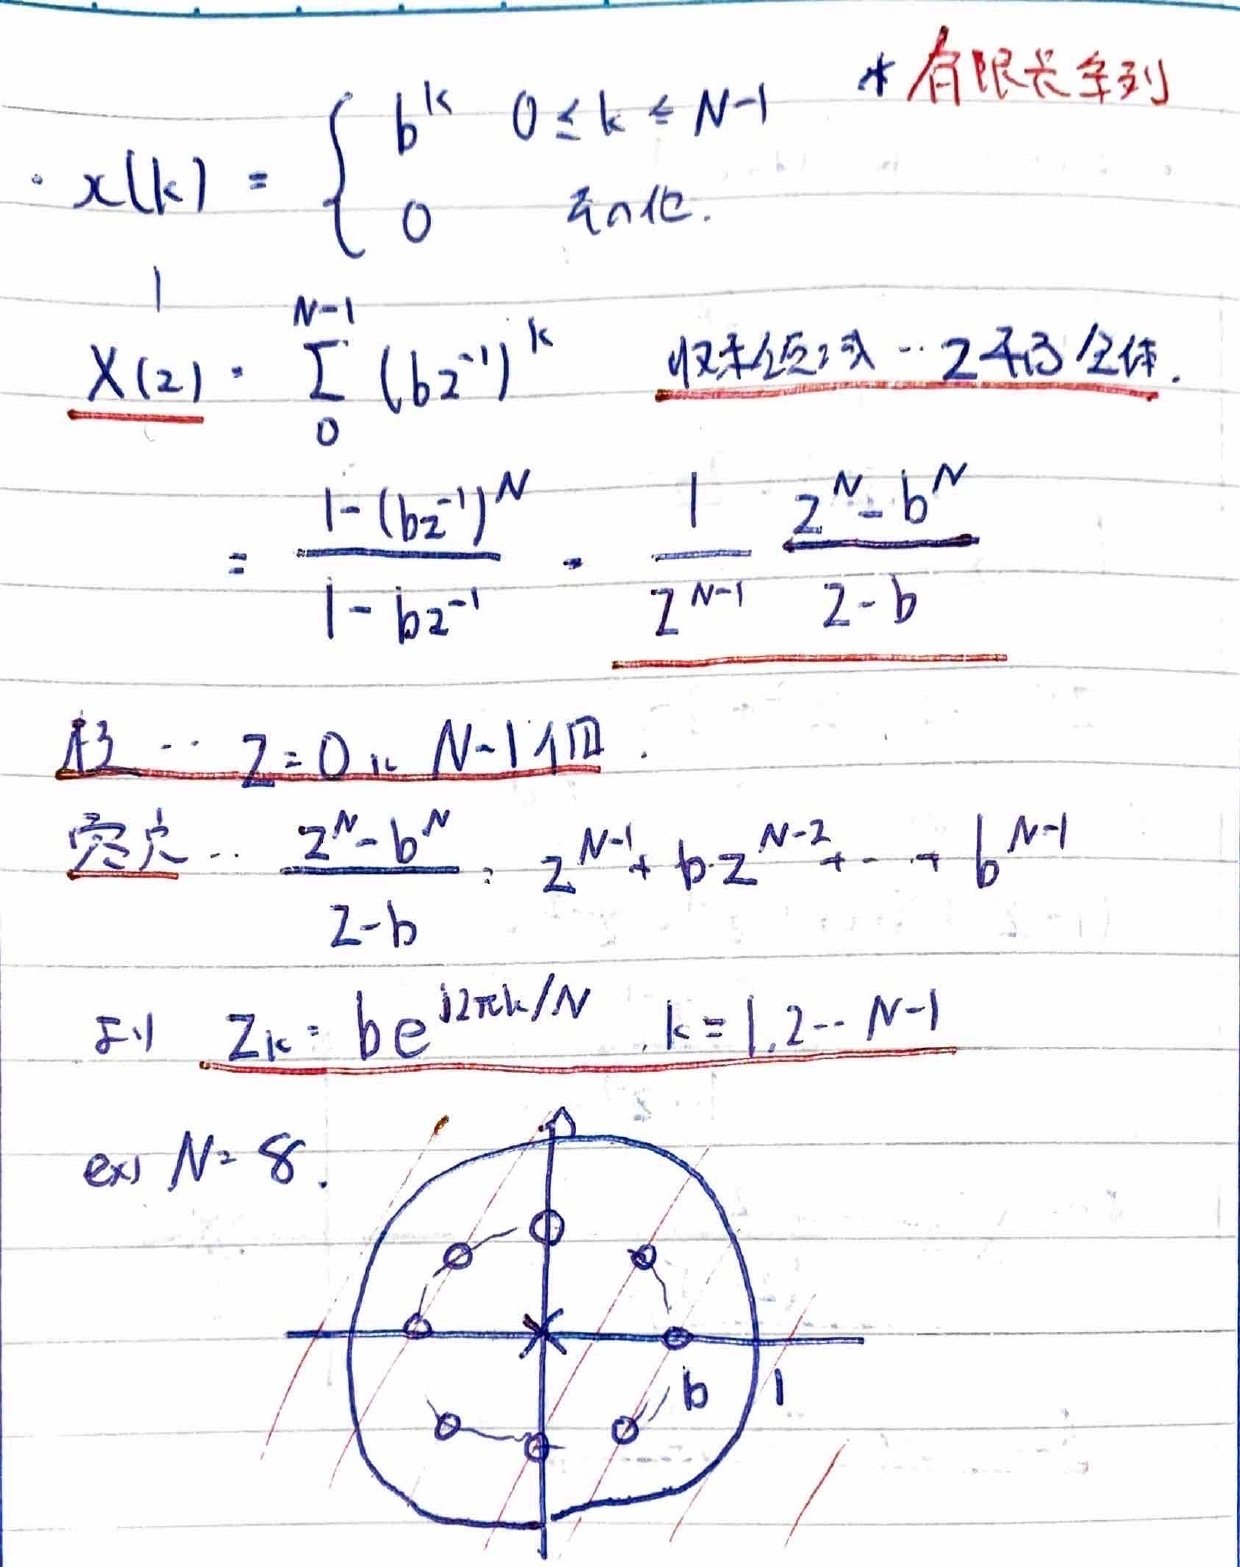 * 有限長系列
・x(k) = { b^k 0 ≤ k ≤ N-1
0 その他.
X(z) = Σ_0^{N-1} (bz^{-1})^k 収束領域 … z平面全体.
= (1-(bz^{-1})^N)/(1-bz^{-1}) = 1/z^{N-1} (z^N - b^N)/(z-b)
極 … z=0に N-1個.
零点 … (z^N - b^N)/(z-b) = z^{N-1} + b・z^{N-2} + … + b^{N-1}
より z_k = be^{j2πk/N} , k=1,2…N-1
ex) N=8.
b 1